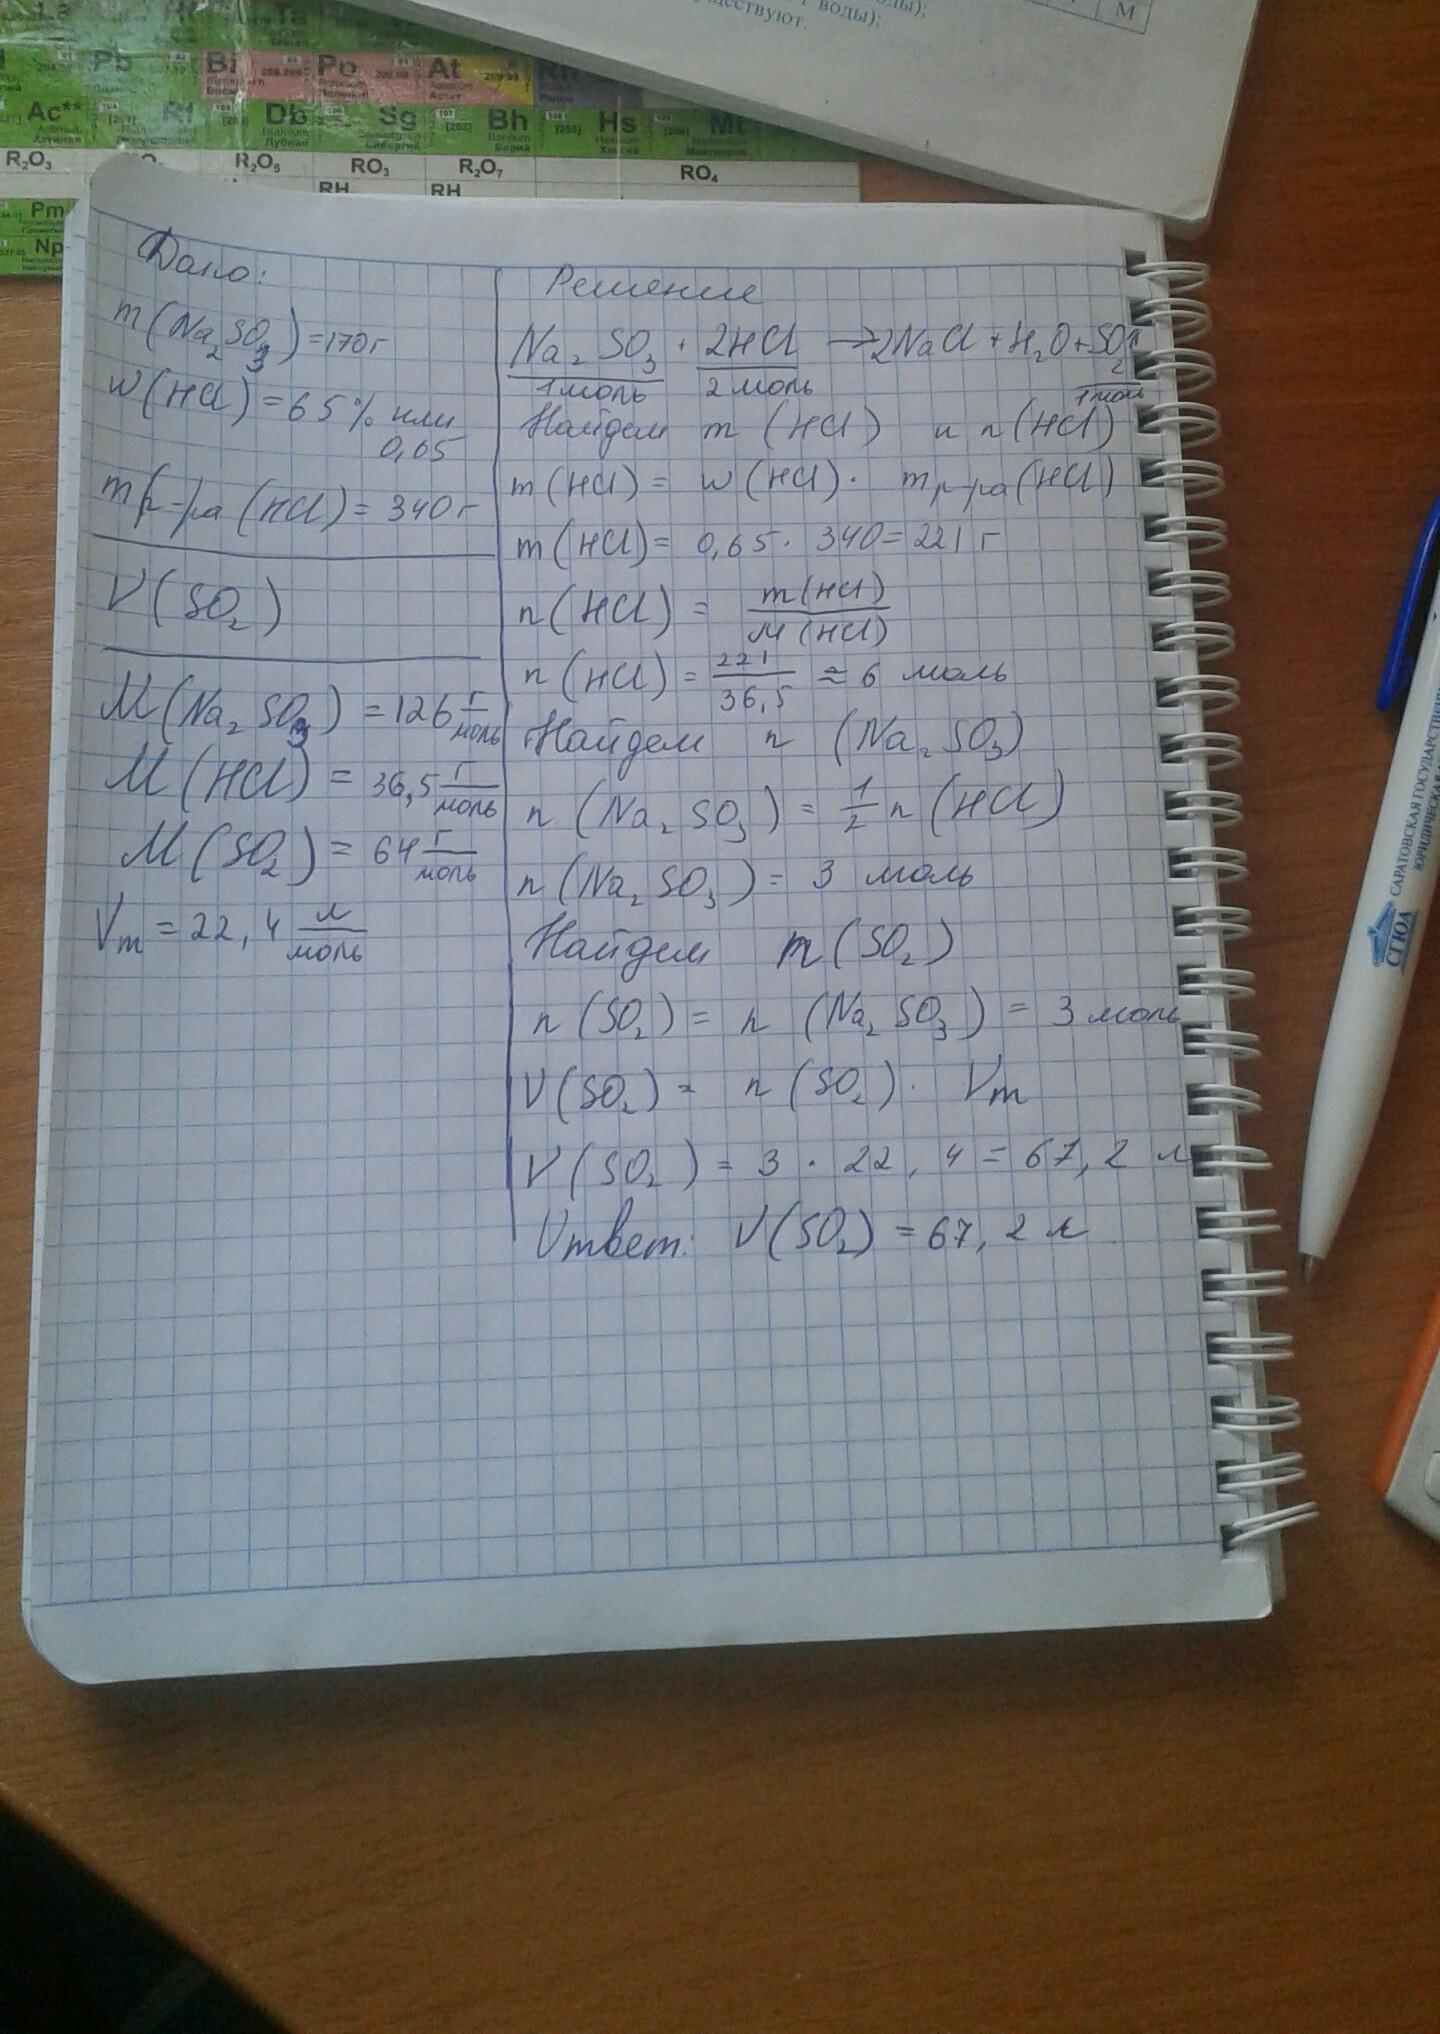 La Hf Ta
Pb Bi Po At Rn
208.980 209.98 209.99
Ac** Rf Db Sg Bh Hs Mt
[262]
Дубний
R₂O₃ R₂O₅ RO₃ R₂O₇ RO₄
RH RH
Pm
Np
воды);
ществуют.
М
Дано:
m(Na₂SO₃)=170г
w(HCl)=65% или
0,65
mр-ра(HCl)=340г
V(SO₂)
M(Na₂SO₃)=126 г/моль
M(HCl)=36,5 г/моль
M(SO₂)=64 г/моль
Vm=22,4 л/моль
Решение
Na₂SO₃ + 2HCl → 2NaCl + H₂O + SO₂↑
1моль 2моль 1моль
Найдем m(HCl) и n(HCl)
m(HCl)= w(HCl)· mр-ра(HCl)
m(HCl)= 0,65· 340=221г
n(HCl) = m(HCl)/M(HCl)
n(HCl)=221/36,5 ≈ 6 моль
Найдем n (Na₂SO₃)
n(Na₂SO₃) = 1/2 n(HCl)
n(Na₂SO₃) = 3 моль
Найдем m(SO₂)
n(SO₂) = n (Na₂SO₃) = 3 моль
V(SO₂)= n(SO₂)· Vm
V(SO₂) = 3 · 22,4 = 67,2 л
Ответ: V(SO₂) = 67,2 л
СГЮА
САРАТОВСКАЯ ГОСУДАРСТВЕН
ЮРИДИЧЕСКАЯ